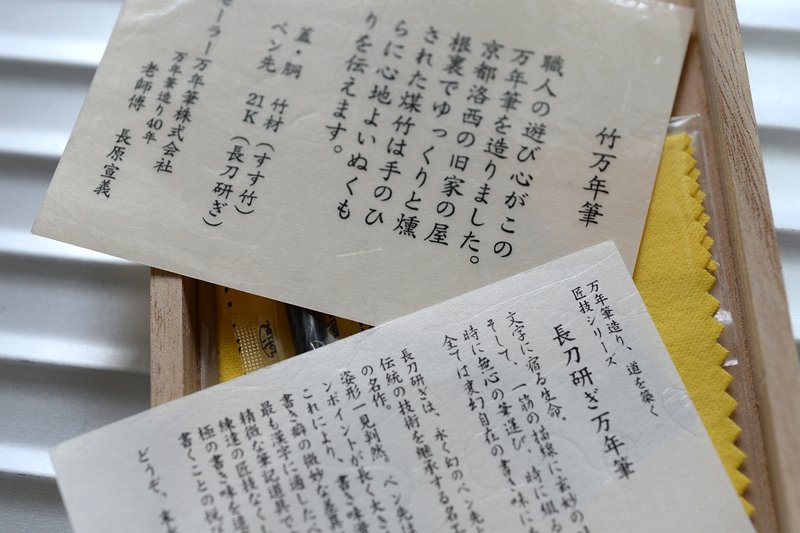 竹万年筆
職人の遊び心がこの
万年筆を造りました。
京都洛西の旧家の屋
根裏でゆっくりと燻
された煤竹は手のひ
らに心地よいぬくも
りを伝えます。
蓋・胴 竹材(すす竹)
ペン先 21K(長刀研ぎ)
セーラー万年筆株式会社
万年筆造り40年
老師博 長原宣義
万年筆造り、道を築く
匠技シリーズ
長刀研ぎ万年筆
文字に宿る生命。
そして、一筋の描線に玄妙の
時に無心の筆運び、時に綴る
全ては変幻自在の書き味に
長刀研ぎは、永く幻のペン先と
伝統の技術を継承する名工
の名作。
姿形一見判然、ペン先は
ンポイントが長く大き
これにより、書き味
書き癖の微妙な差異
最も漢字に適したペ
精微な筆記道具で
練達の匠技なくし
極の書き味を造
書くことの悦び
どうぞ、末